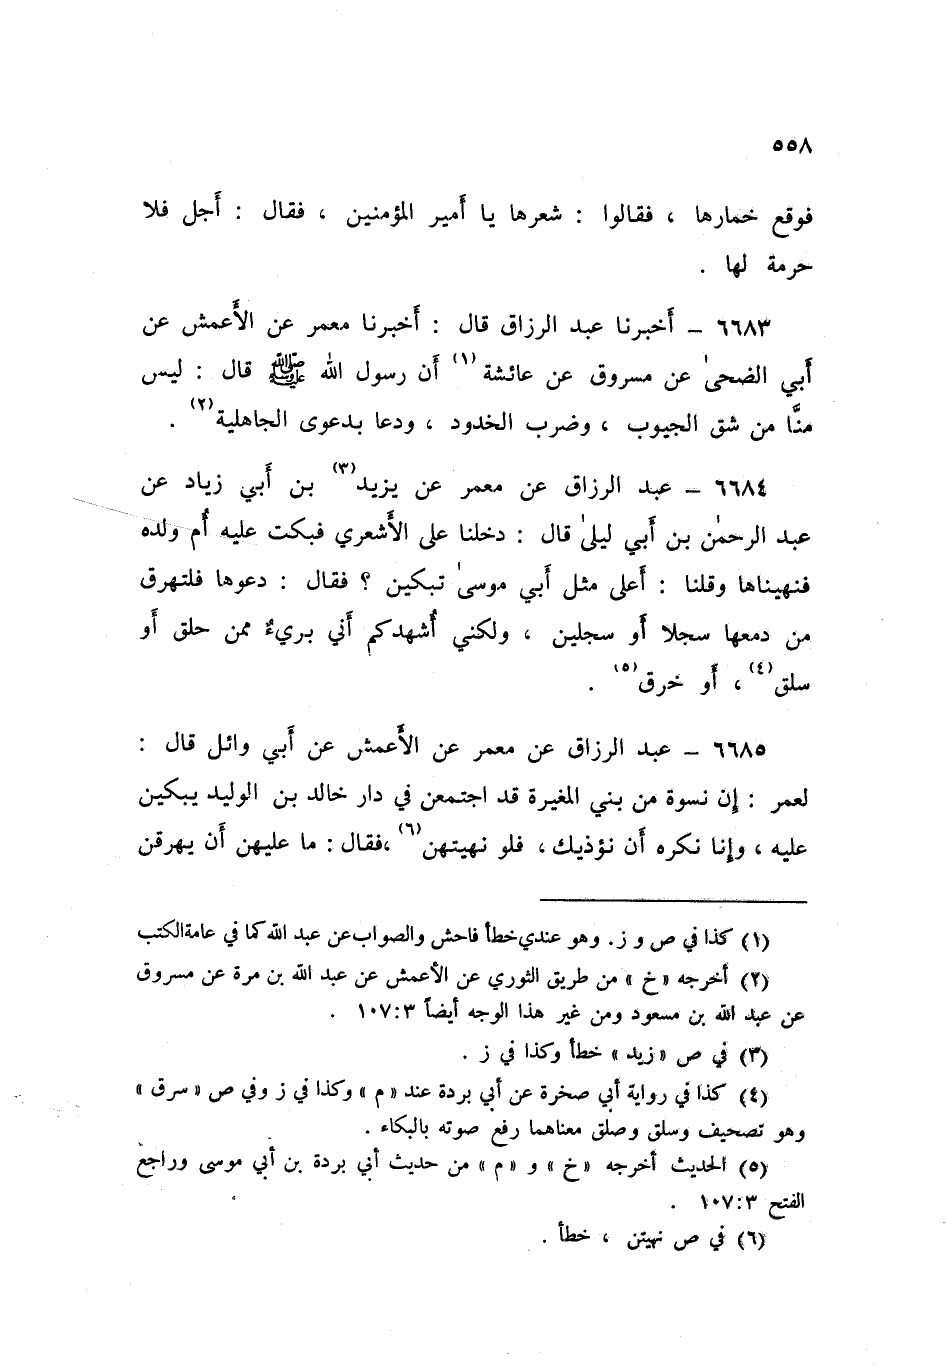 ٥٥٨
فوقع خمارها ، فقالوا : شعرها يا أَمير المؤمنين ، فقال : أَجل فلا
حرمة لها .
٦٦٨٣ – أَخبرنا عبد الرزاق قال : أَخبرنا معمر عن الأَعمش عن
أَبي الضحىٰ عن مسروق عن عائشة (١) أَن رسول الله ﷺ قال : ليس
منَّا من شق الجيوب ، وضرب الخدود ، ودعا بدعوى الجاهلية (٢) .
٦٦٨٤ – عبد الرزاق عن معمر عن يزيد (٣) بن أَبي زياد عن
عبد الرحمٰن بن أَبي ليلىٰ قال : دخلنا على الأَشعري فبكت عليه أُم ولده
فنهيناها وقلنا : أَعلى مثل أَبي موسىٰ تبكين ؟ فقال : دعوها فلتهرق
من دمعها سجلا أَو سجلين ، ولكني أُشهدكم أَني بريءٌ ممن حلق أَو
سلق (٤) ، أَو خرق (٥) .
٦٦٨٥ – عبد الرزاق عن معمر عن الأَعمش عن أَبي وائل قال :
لعمر : إِن نسوة من بني المغيرة قد اجتمعن في دار خالد بن الوليد يبكين
عليه ، وإِنا نكره أَن نؤذيك ، فلو نهيتهن (٦) ،فقال : ما عليهن أَن يهرقن
(١) كذا في ص و ز. وهو عندي خطأ فاحش والصواب عن عبد الله كما في عامة الكتب
(٢) أخرجه «خ» من طريق الثوري عن الأعمش عن عبد الله بن مرة عن مسروق
عن عبد الله بن مسعود ومن غير هذا الوجه أيضاً ٣:١٠٧ .
(٣) في ص «زيد» خطأ وكذا في ز .
(٤) كذا في رواية أبي صخرة عن أبي بردة عند «م» وكذا في ز وفي ص «سرق»
وهو تصحيف وسلق وصلق معناهما رفع صوته بالبكاء .
(٥) الحديث أخرجه «خ» و «م» من حديث أبي بردة بن أبي موسى وراجع
الفتح ٣:١٠٧ .
(٦) في ص نهيتن ، خطأ .